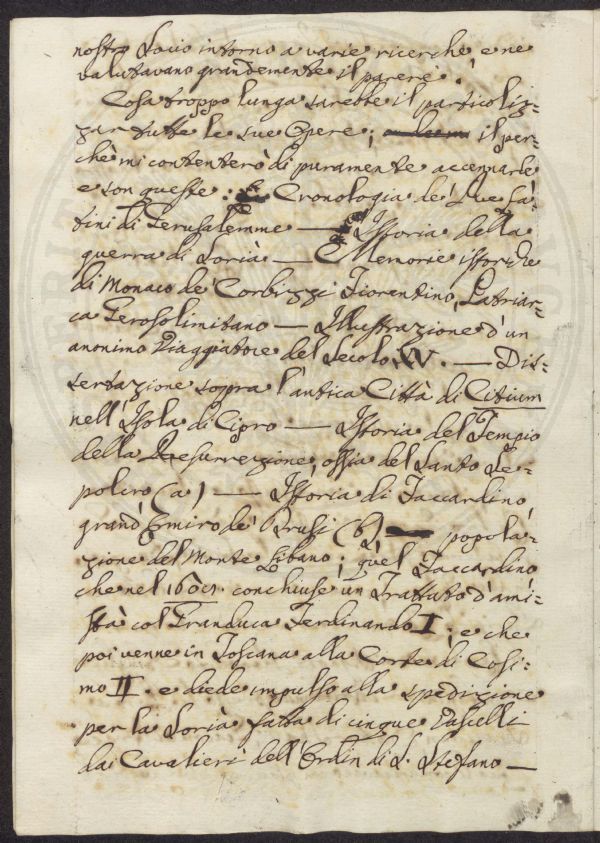 nostro Socio intorno a varie ricerche e ne
valutavano grandemente il parere.
Cosa troppo lunga sarebbe il particoliz=
zar tutte le sue Opere; il per=
chè mi contenterò di puramente accennarle
e son queste: Cronologia de' Due La=
tini di Gerusalemme — Istoria della
guerra di Soria — Memorie istoriche
di Monaco de' Corbizzi Fiorentino, Patriar=
ca Gerosolimitano — Illustrazione d'un
anonimo Viaggiatore del Secolo XV. — Dis=
sertazione sopra l'antica Città di Citium
nell'Isola di Cipro — Istoria del Tempio
della Resurrezione, ossia del Santo Se=
polcro (a) — Istoria di Faccardino
grand'Emiro de' Drusi (b) popola=
zione del Monte Libano; quel Faccardino
che nel conchiuse un Trattato d'ami=
stà col Granduca Ferdinando I; e che
poi venne in Toscana alla Corte di Cosi=
mo II. e diede impulso alla spedizione
per la Soria fatta di cinque Vascelli
dai Cavalieri dell'Ordin di S. Stefano —